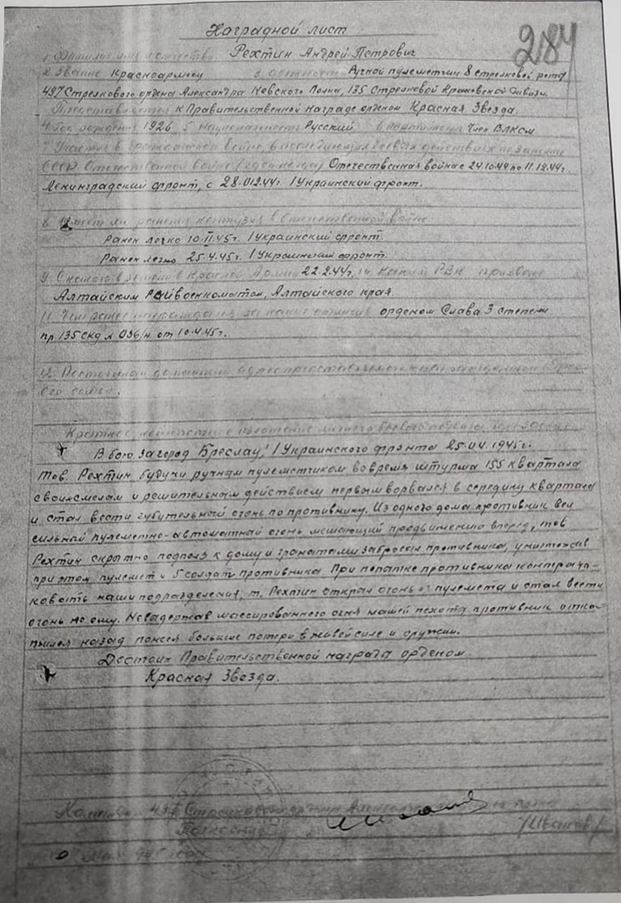 Наградной лист
284
1. Фамилия имя отчество Рехтин Андрей Петрович
2. Звание Красноармеец 3. должность Ручной пулеметчик 8 стрелковой роты
497 Стрелкового ордена Александра Невского Полка, 135 Стрелковой Краковской дивизии.
Представляется к Правительственной награде орденом Красная Звезда.
4. Год рождения 1926 5. Национальность Русский 6. партийность Член ВЛКСМ
7. Участие в
СССР Отечественной войне Отечественная война с 24.10.44 по 11.12.44г.
Ленинградский фронт, с 28.012.44г. 1 Украинский фронт.
8. Имеет ли ранения, контузия в Отечественной войне
Ранен легко 10.II.45г. 1 Украинский фронт.
Ранен легко 25.4.45г. 1 Украинский фронт.
9. С какого времени в Красной Армии 22.2.44г. 10. каким РВК призван
Алтайским Райвоенкоматом, Алтайского края
11. Чем ранее награжден за какие отличия орденом Слава 3 степени
пр 135 СКД № 036/н от 10.4.45г.
12. Постоянный домашний адрес представляемого
его семьи.
Краткое, конкретное изложение личного боевого подвига
В бою за город Бреслау, 1 Украинского фронта 25.04.1945г.
Тов. Рехтин будучи ручным пулеметчиком во время штурма 155 квартала
своим смелым и решительным действием первым ворвался в середину квартала
и стал вести губительный огонь по противнику. Из одного дома противник вел
сильный пулеметно-автоматный огонь мешающий продвижению вперед, тов
Рехтин скрытно подполз к дому и гранатами забросал противника, уничтожив
при этом пулемет и 5 солдат противника. При попытке противника контрата-
ковать наши подразделения, т. Рехтин открыл огонь из пулемета и стал вести
огонь по ему. Невыдержав массированного огня нашей пехоты противник отка-
тился назад понеся большие потери в живой силе и оружии.
Достоин Правительственной награды орденом
Красная Звезда.
Командир 497 Стрелкового ордена Александра полка
Полковник /Иванов/